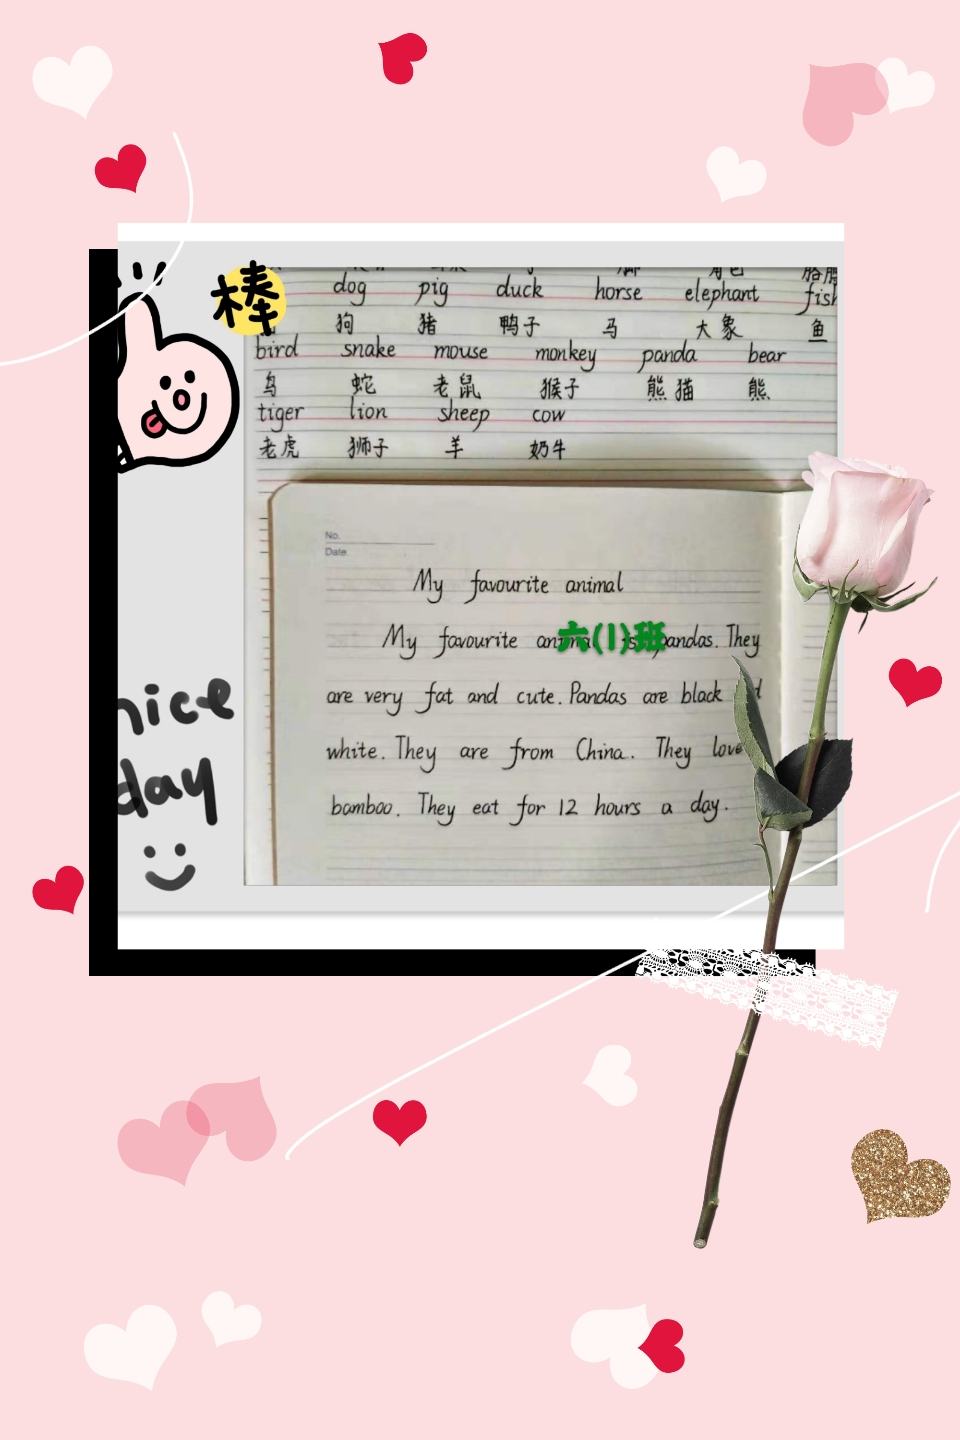 棒
dog pig duck horse elephant fish
狗 猪 鸭子 马 大象 鱼
bird snake mouse monkey panda bear
鸟 蛇 老鼠 猴子 熊猫 熊
tiger lion sheep cow
老虎 狮子 羊 奶牛
No.
Date
My favourite animal
My favourite animal is pandas. They
六(1)班
are very fat and cute. Pandas are black
white. They are from China. They love
bamboo. They eat for 12 hours a day.
nice
day